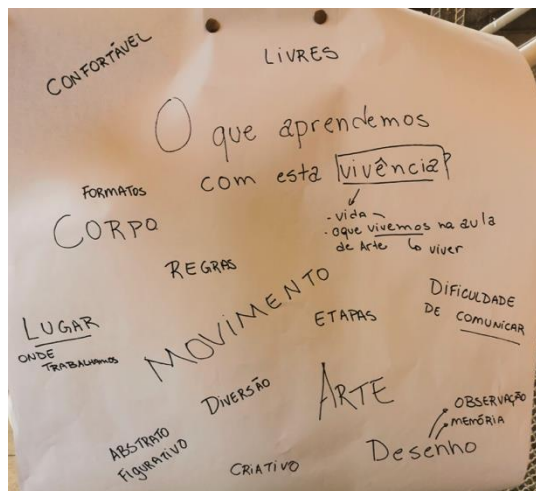 CONFORTÁVEL
LIVRES
O que aprendemos
com esta vivência?
- vida
- o que vivemos na aula
de Arte
viver
FORMATOS
CORPO
REGRAS
MOVIMENTO
ETAPAS
DIFICULDADE
DE COMUNICAR
LUGAR
ONDE
TRABALHAMOS
DIVERSÃO
ARTE
OBSERVAÇÃO
MEMÓRIA
Desenho
ABSTRATO
FIGURATIVO
CRIATIVO